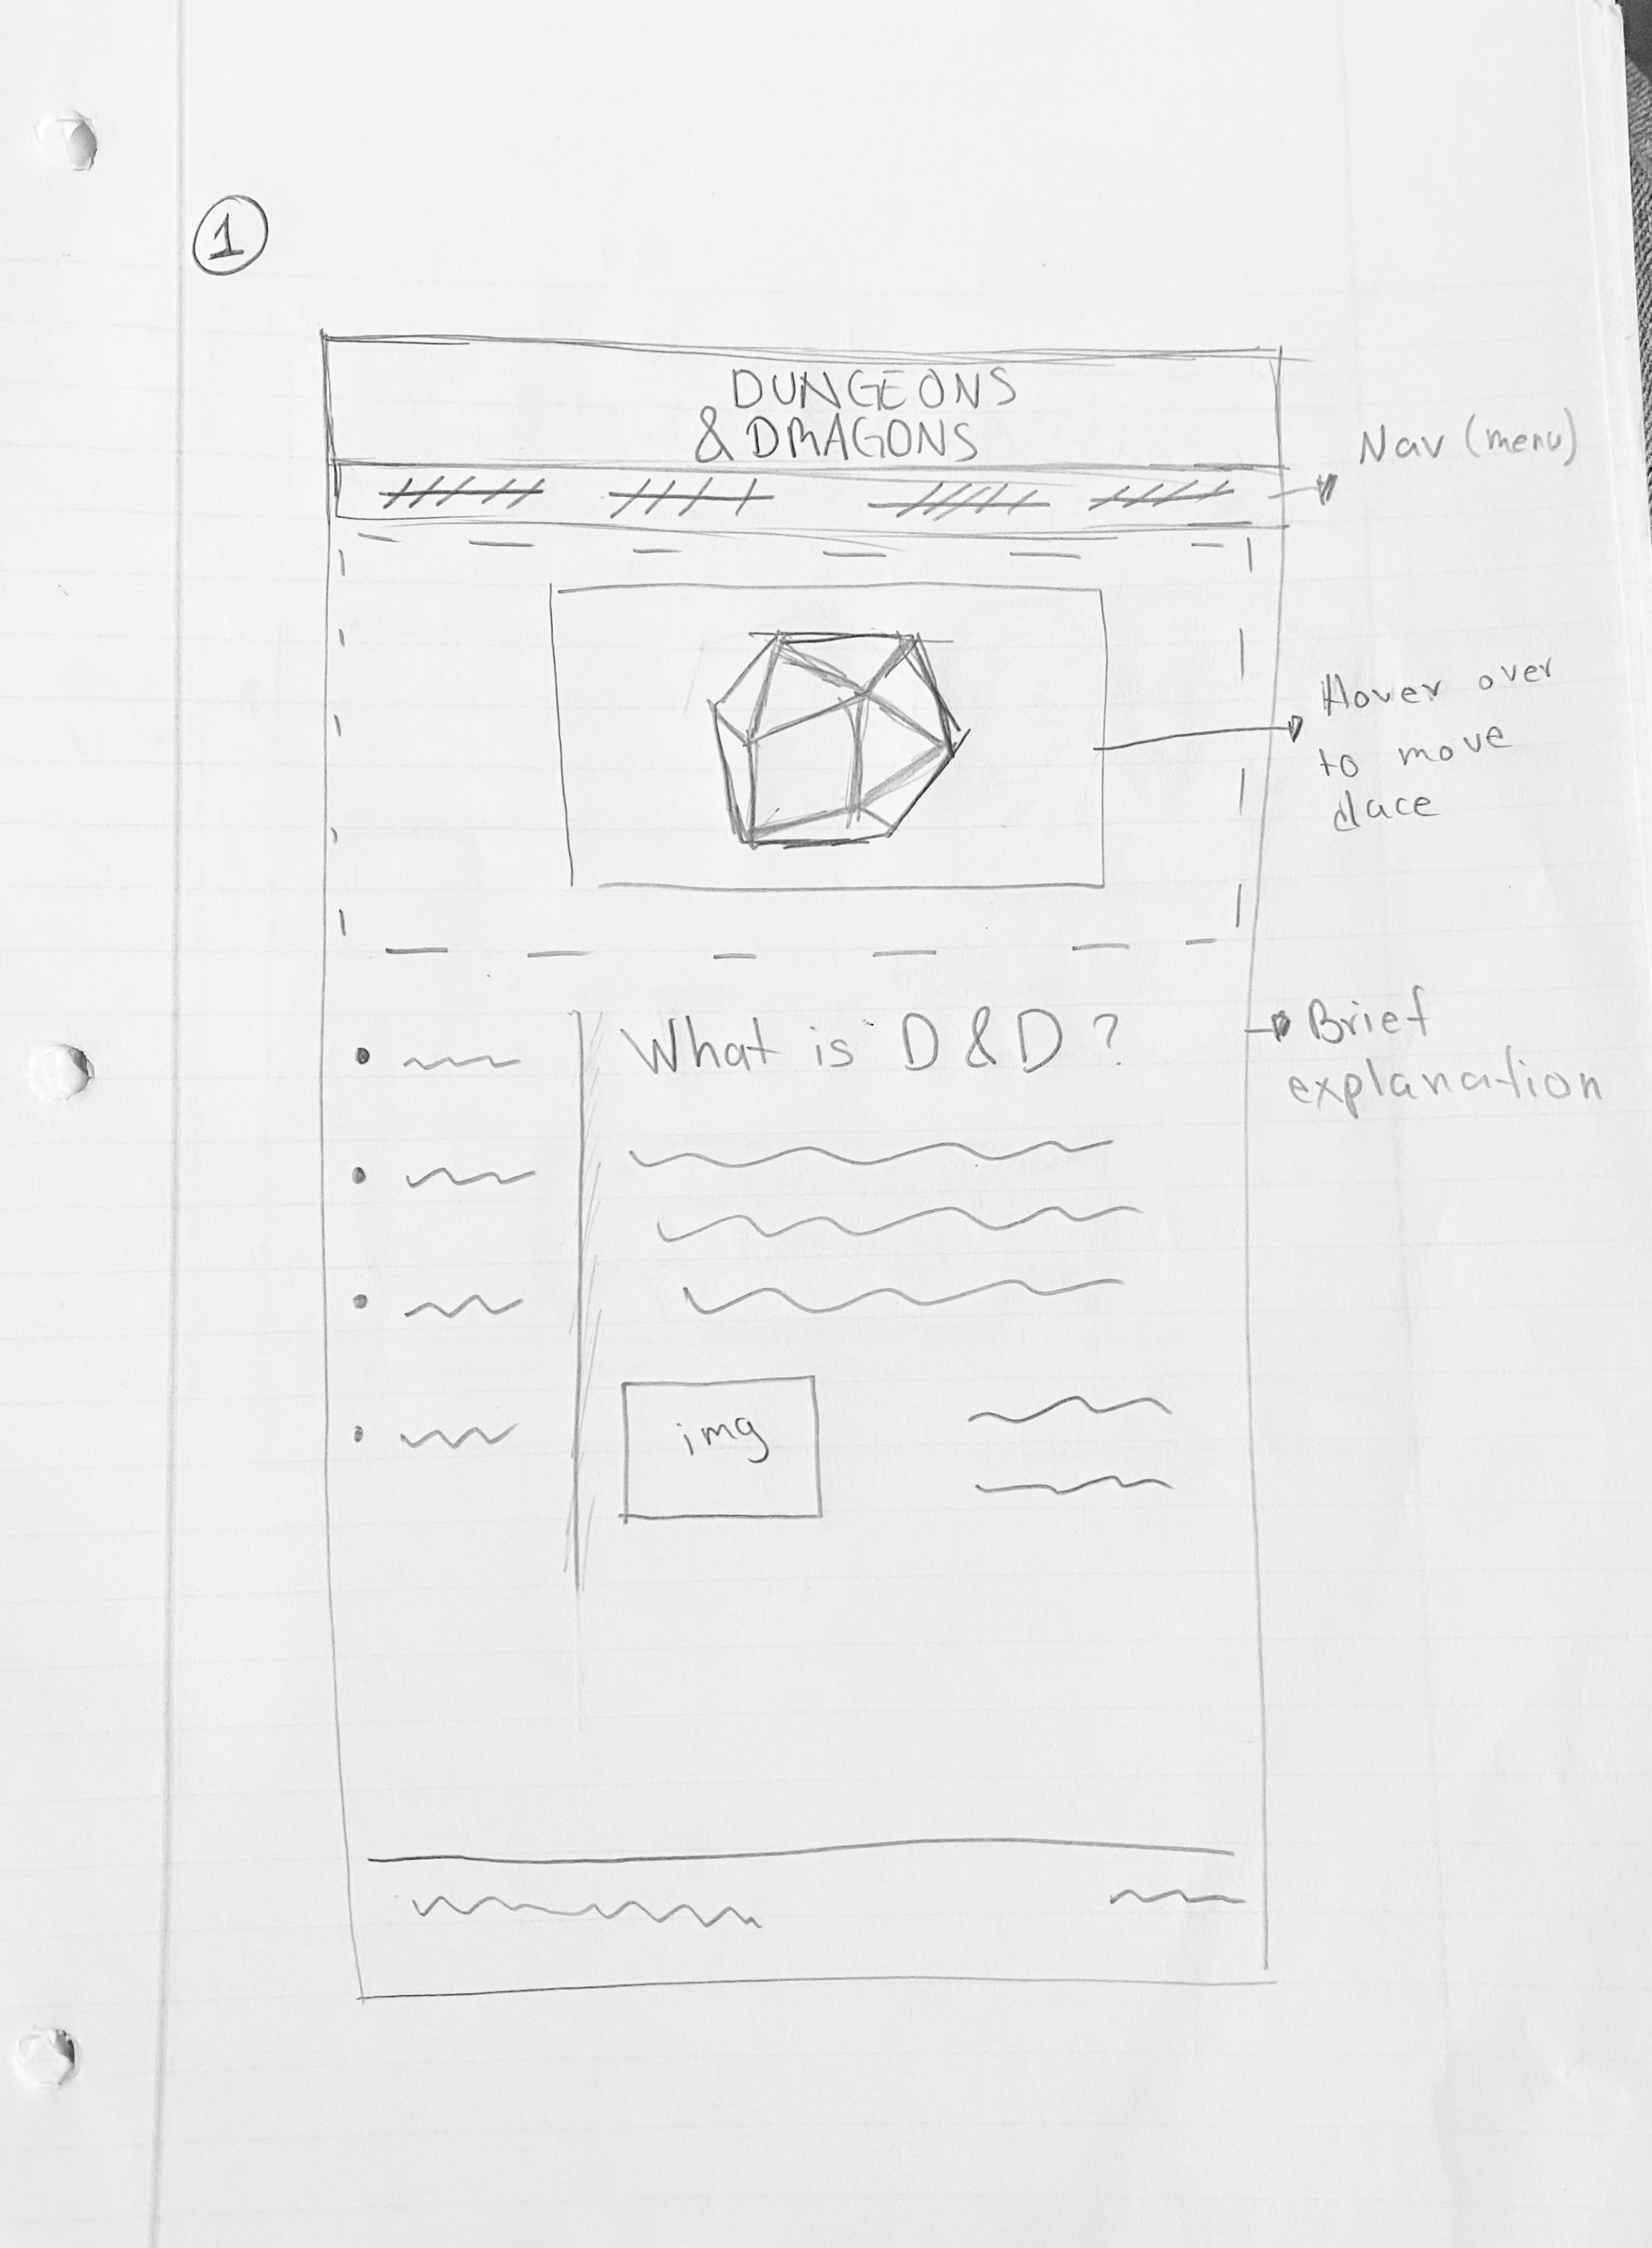 1
DUNGEONS
& DRAGONS
Nav (menu)
Hover over
to move
dace
What is D & D ?
Brief
explanation
img